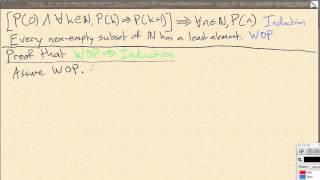 [P(0) ∧ ∀k∈ℕ, P(k) ⇒ P(k+1)] ⇒ ∀n∈ℕ, P(n) Induction
Every non-empty subset of ℕ has a least element. WOP
Proof that WOP ⇒ Induction
Assume WOP.